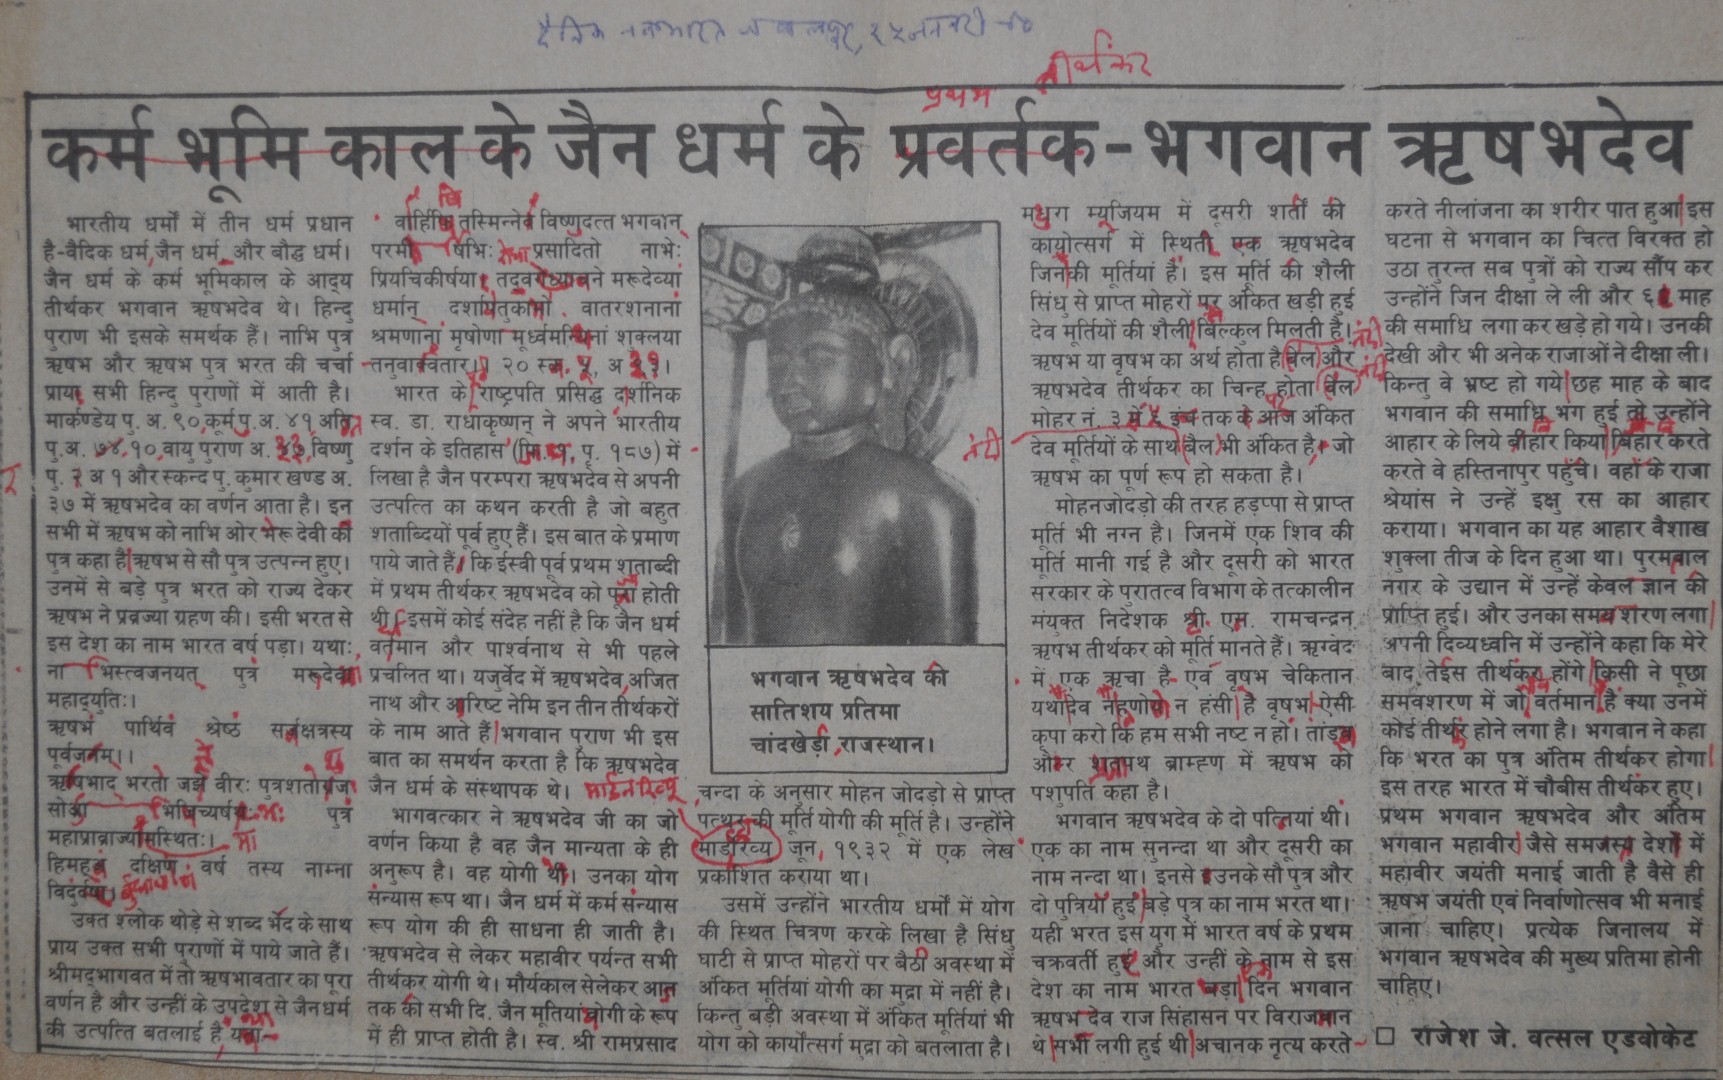 प्रथम
तीर्थंकर
कर्म भूमि काल के जैन धर्म के प्रवर्तक-भगवान ऋषभदेव
भारतीय धर्मों में तीन धर्म प्रधान
है-वैदिक धर्म, जैन धर्म और बौद्ध धर्म।
जैन धर्म के कर्म भूमिकाल के आद्य
तीर्थकर भगवान ऋषभदेव थे। हिन्दु
पुराण भी इसके समर्थक हैं। नाभि पुत्र
ऋषभ और ऋषभ पुत्र भरत की चर्चा
प्रायः सभी हिन्दु पुराणों में आती है।
मार्कण्डेय पु. अ. ९०, कूर्म पु. अ. ४१
पु. अ. ७४, १०, वायु पुराण अ. ३३, विष्णु
पु. २ अ १ और स्कन्द पु. कुमार खण्ड अ.
३७ में ऋषभदेव का वर्णन आता है। इन
सभी में ऋषभ को नाभि ओर मेरू देवी की
पुत्र कहा है ऋषभ से सौ पुत्र उत्पन्न हुए।
उनमें से बड़े पुत्र भरत को राज्य देकर
ऋषभ ने प्रव्रज्या ग्रहण की। इसी भरत से
इस देश का नाम भारत वर्ष पड़ा। यथा:
ना भिस्त्वजनयत् पुत्रं मरूदेव्या
महाद्युतिः।
ऋषभं पार्थिवं श्रेष्ठं सर्वक्षत्रस्य
पूर्वजनम्।।
ऋषभाद् भरतो जज्ञे वीरः पुत्रशतोग्रजः
पुत्रं
हिमहवं दक्षिणं वर्ष तस्य नाम्ना
उक्त श्लोक थोड़े से शब्द भेद के साथ
प्राय उक्त सभी पुराणों में पाये जाते हैं।
श्रीमद्भागवत में तो ऋषभावतार का पूरा
वर्णन है और उन्हीं के उपदेश से जैनधर्म
की उत्पत्ति बतलाई है, यथा-
तस्मिन्नेव विष्णुदत्त भगवान्
परमर्षिभिः प्रसादितो नाभेः
प्रियचिकीर्षया मरूदेव्यां
धर्मान् वातरशनानां
श्रमणानां शक्लया
२० स्क. ५, अ ३१।
भारत के राष्ट्रपति प्रसिद्ध दार्शनिक
स्व. डा. राधाकृष्णन् ने अपने भारतीय
दर्शन के इतिहास' पृ. १८७) में
लिखा है जैन परम्परा ऋषभदेव से अपनी
उत्पत्ति का कथन करती है जो बहुत
शताब्दियों पूर्व हुए हैं। इस बात के प्रमाण
पाये जाते हैं, कि ईस्वी पूर्व प्रथम शताब्दी
में प्रथम तीर्थकर ऋषभदेव की पूजा होती
थी। इसमें कोई संदेह नहीं है कि जैन धर्म
वर्तमान और पार्श्वनाथ से भी पहले
प्रचलित था। यजुर्वेद में ऋषभदेव, अजित
नाथ और अरिष्ट नेमि इन तीन तीर्थकरों
के नाम आते हैं भगवान पुराण भी इस
बात का समर्थन करता है कि ऋषभदेव
जैन धर्म के संस्थापक थे।
भागवत्कार ने ऋषभदेव जी का जो
वर्णन किया है वह जैन मान्यता के ही
अनुरूप है। वह योगी थे। उनका योग
संन्यास रूप था। जैन धर्म में कर्म संन्यास
रूप योग की ही साधना ही जाती है।
ऋषभदेव से लेकर महावीर पर्यन्त सभी
तीर्थकर योगी थे। मौर्यकाल से लेकर आज
तक की सभी दि. जैन मूर्तियां योगी के रूप
में ही प्राप्त होती है। स्व. श्री रामप्रसाद
भगवान ऋषभदेव की
सातिशय प्रतिमा
चांदखेड़ी, राजस्थान।
चन्दा के अनुसार मोहन जोदड़ो से प्राप्त
पत्थर की मूर्ति योगी की मूर्ति है। उन्होंने
जून, १९३२ में एक लेख
प्रकाशित कराया था।
उसमें उन्होंने भारतीय धर्मों में योग
की स्थित चित्रण करके लिखा है सिंधु
घाटी से प्राप्त मोहरों पर बैठी अवस्था में
अंकित मूर्तियां योगी का मुद्रा में नहीं है।
किन्तु बड़ी अवस्था में अंकित मूर्तियां भी
योग को कार्योत्सर्ग मुद्रा को बतलाता है।
मथुरा म्यूजियम में दूसरी शर्ती की
कायोत्सर्ग में स्थिती एक ऋषभदेव
जिनकी मूर्तियां हैं। इस मूर्ति की शैली
सिंधु से प्राप्त मोहरों पर अंकित खड़ी हुई
देव मूर्तियों की शैली बिल्कुल मिलती है।
ऋषभ या वृषभ का अर्थ होता है बैल और
ऋषभदेव तीर्थकर का चिन्ह होता बैल
मोहर नं. ३ तक के अंकित
देव मूर्तियों के साथ बैल भी अंकित है, जो
ऋषभ का पूर्ण रूप हो सकता है।
मोहनजोदड़ो की तरह हड़प्पा से प्राप्त
मूर्ति भी नग्न है। जिनमें एक शिव की
मूर्ति मानी गई है और दूसरी को भारत
सरकार के पुरातत्व विभाग के तत्कालीन
संयुक्त निदेशक श्री. एम. रामचन्द्रन
ऋषभ तीर्थकर को मूर्ति मानते हैं। ऋग्वेद
में एक ऋचा है- एवं वृषभ चेकितान
न हंसी है वृषभ ऐसी
कृपा करो कि हम सभी नष्ट न हों। तांडव
और शतपथ ब्राम्हण में ऋषभ को
पशुपति कहा है।
भगवान ऋषभदेव के दो पत्नियां थीं।
एक का नाम सुनन्दा था और दूसरी का
नाम नन्दा था। इनसे उनके सौ पुत्र और
दो पुत्रियाँ हुई बड़े पुत्र का नाम भरत था।
यही भरत इस युग में भारत वर्ष के प्रथम
चक्रवर्ती हुए और उन्हीं के नाम से इस
देश का नाम भारत पड़ा दिन भगवान
ऋषभ देव राज सिंहासन पर विराजमान
थे सभा लगी हुई थी अचानक नृत्य करते
करते नीलांजना का शरीर पात हुआ इस
घटना से भगवान का चित्त विरक्त हो
उठा तुरन्त सब पुत्रों को राज्य सौंप कर
उन्होंने जिन दीक्षा ले ली और ६ माह
की समाधि लगा कर खड़े हो गये। उनकी
देखी और भी अनेक राजाओं ने दीक्षा ली।
किन्तु वे भ्रष्ट हो गये छह माह के बाद
भगवान की समाधि भंग हुई तो उन्होंने
आहार के लिये बीहार किया बिहार करते
करते वे हस्तिनापुर पहुंचे। वहां के राजा
श्रेयांस ने उन्हें इक्षु रस का आहार
कराया। भगवान का यह आहार वैशाख
शुक्ला तीज के दिन हुआ था। पुरमताल
नगर के उद्यान में उन्हें केवल ज्ञान की
प्राप्ति हुई। और उनका समव शरण लगा
अपनी दिव्यध्वनि में उन्होंने कहा कि मेरे
बाद तेईस तीर्थकर होंगे किसी ने पूछा
समवशरण में जो वर्तमान है क्या उनमें
कोई तीर्थर होने लगा है। भगवान ने कहा
कि भरत का पुत्र अंतिम तीर्थकर होगा
इस तरह भारत में चौबीस तीर्थकर हुए।
प्रथम भगवान ऋषभदेव और अंतिम
भगवान महावीर जैसे समजस्य देशों में
महावीर जयंती मनाई जाती है वैसे ही
ऋषभ जयंती एवं निर्वाणोत्सव भी मनाई
जाना चाहिए। प्रत्येक जिनालय में
भगवान ऋषभदेव की मुख्य प्रतिमा होनी
चाहिए।
□ राजेश जे. वत्सल एडवोकेट